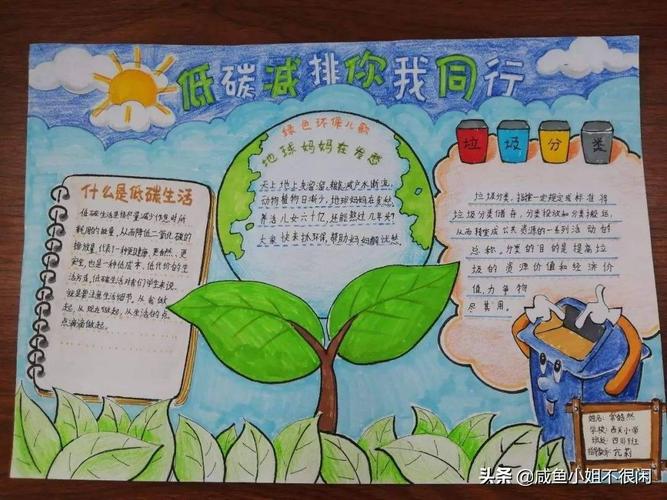 低碳减排你我同行
什么是低碳生活
低碳生活是指尽量减少作息时所
耗用的能量,从而降低二氧化碳的
排放量,代表了一种更健康、更自然、更
安全,也是一种低成本、低代价的生
活方式,低碳生活对我们学生来说,
就是要注意生活细节,从自我做
起,从现在做起,从生活的点
点滴滴做起。
绿色环保儿歌
地球妈妈在发愁
天上地上臭溜溜,粮食减产水断流,
动物植物日渐少,地球妈妈在发愁,
养活儿女六十亿,还能熬过几年头?
大家快来搞环保,帮助妈妈解忧愁。
垃 圾 分 类
垃圾分类,指按一定规定或标准将
垃圾分类储存,分类投放和分类搬运,
从而转变成公共资源的一系列活动的
总称。分类的目的是提高垃
圾的资源价值和经济价
值,力争物
尽其用。
姓名:
学校:西关小学
班级:四、8班
指导教师:
头条 @咸鱼小姐不很闲